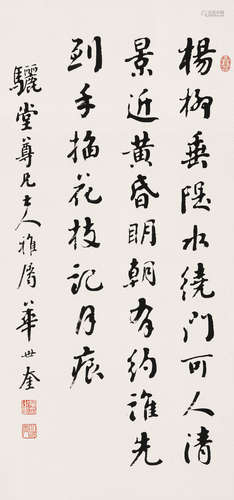 楊柳垂隄水繞門可人清
景近黃昏明朝有約誰先
到手掐花枝記月痕
驪堂尊兄大人雅屬 華世奎